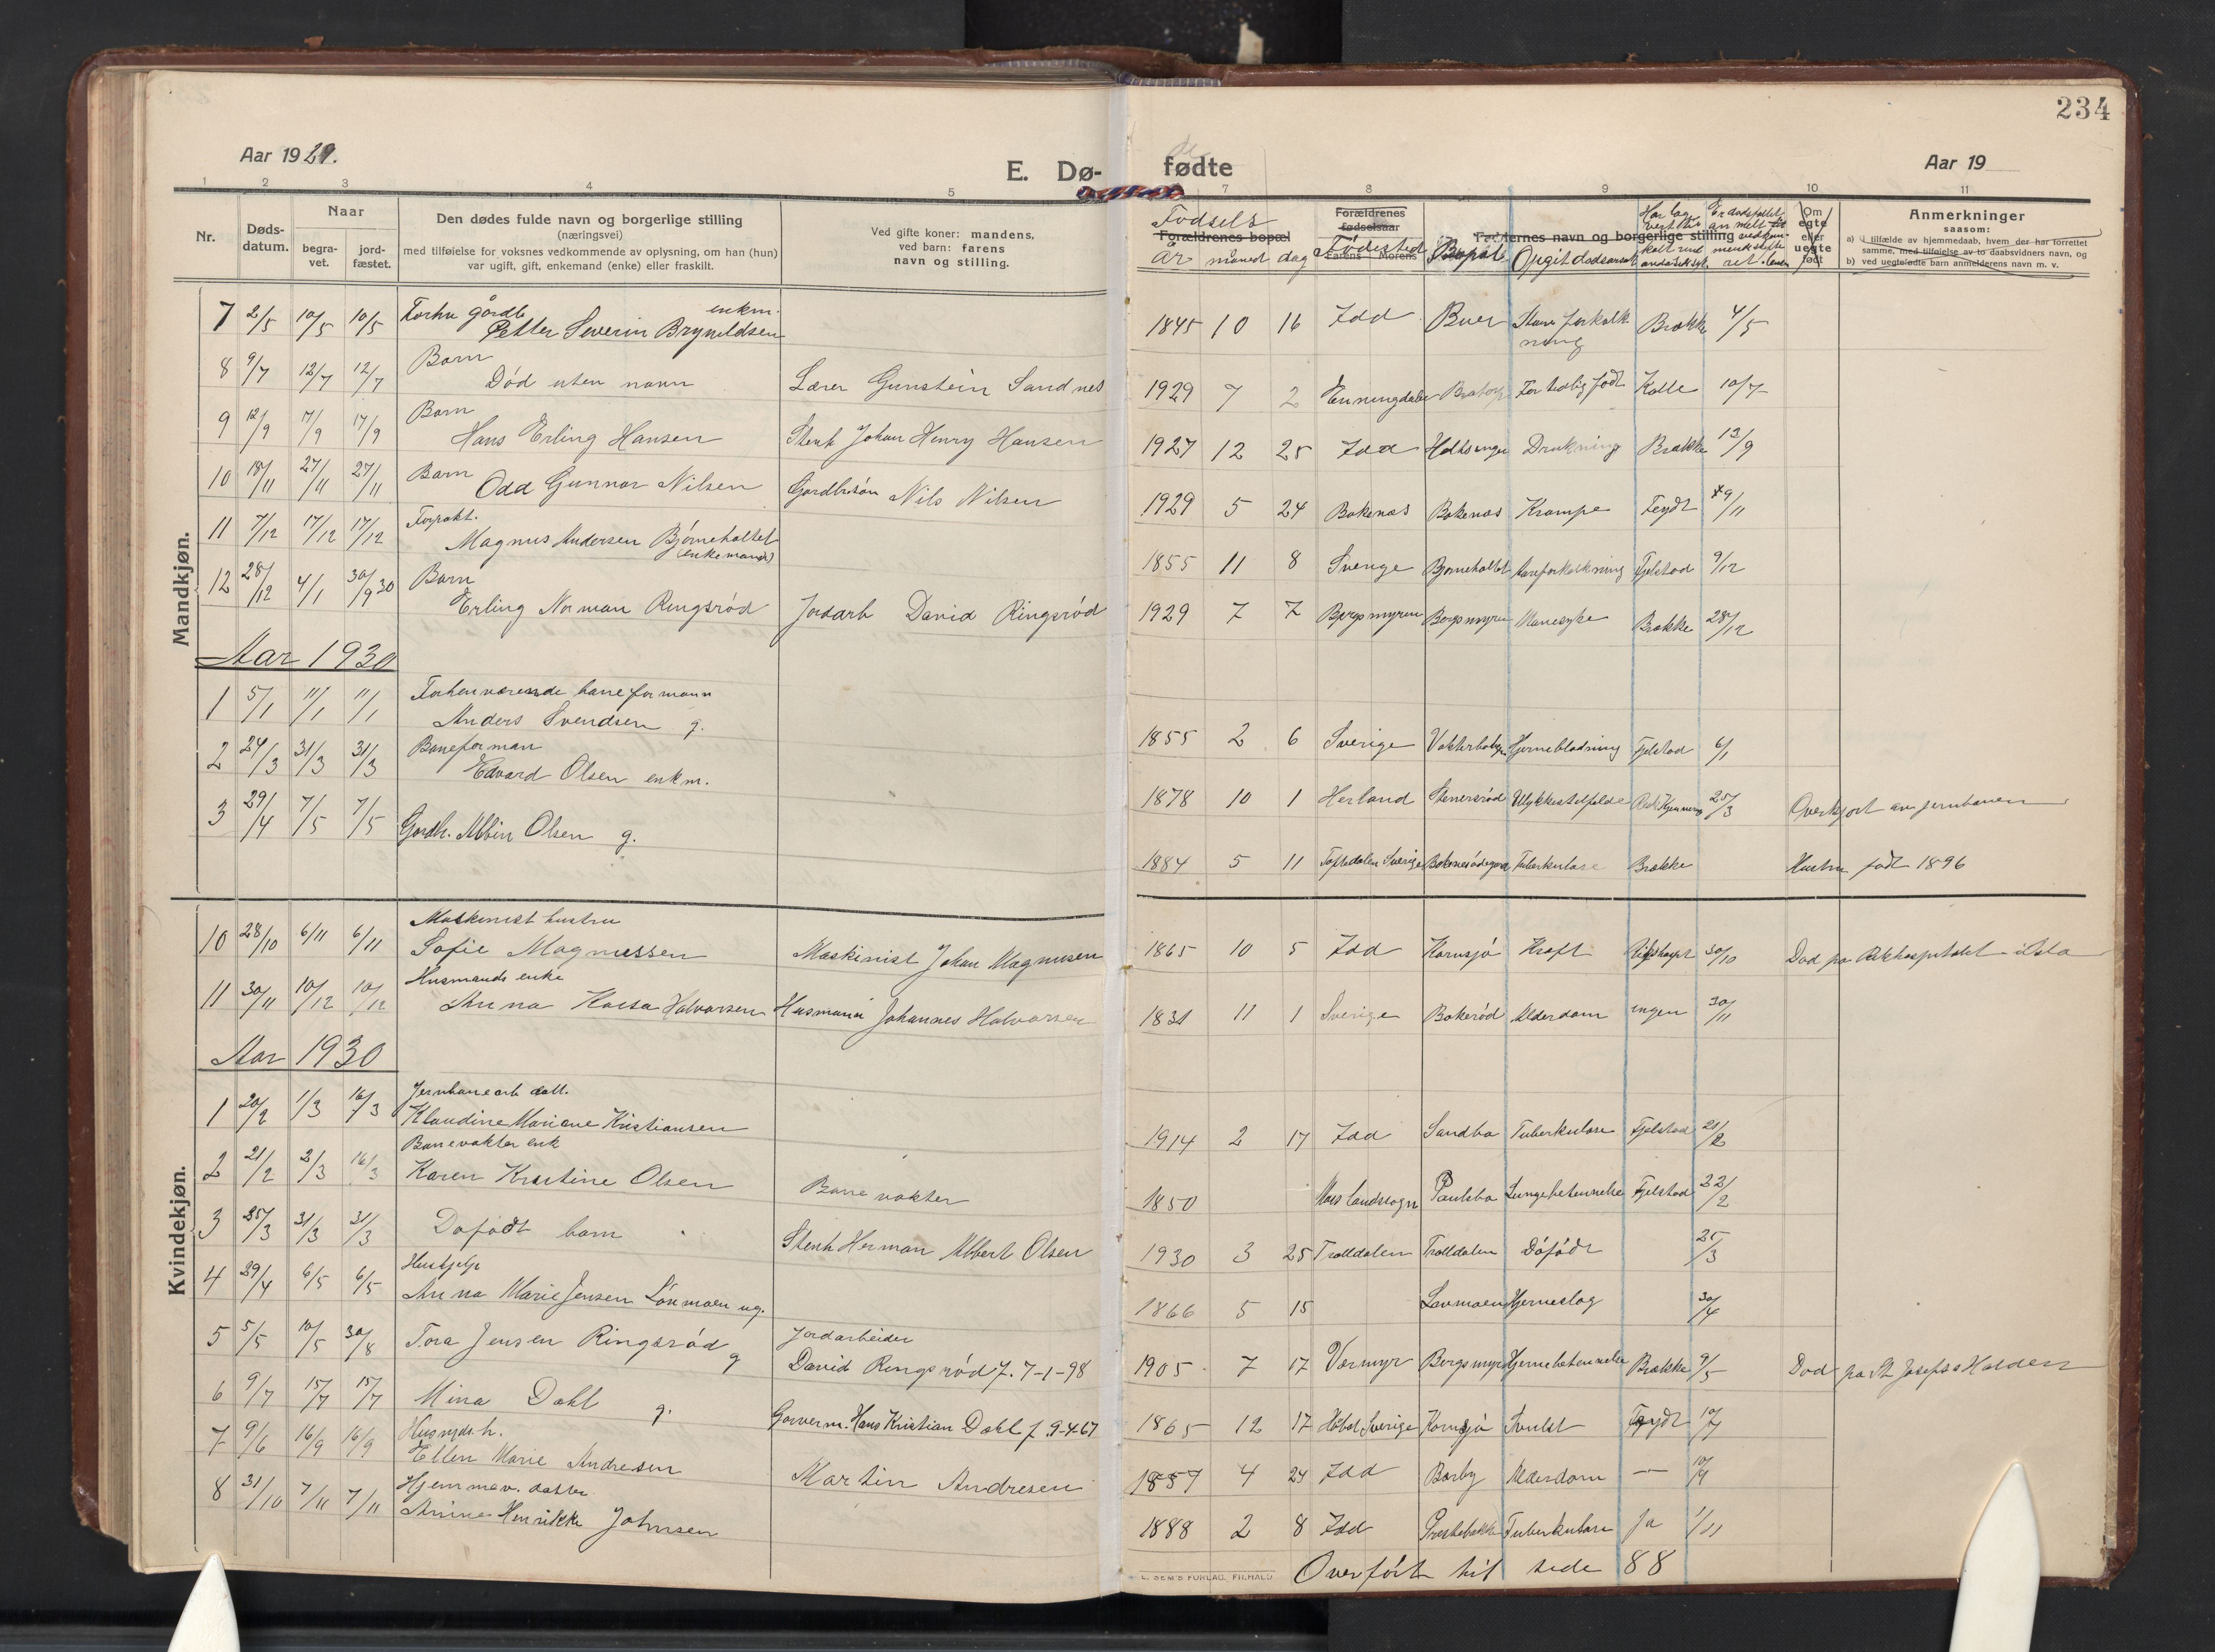 234
Aar 1929.
E. Dø-
fødte
Aar 19
1 2 3 4 5
7 8 9 10 11
Nr.
Døds-
datum.
Naar
begra-
vet.
jord-
fæstet.
Den dødes fulde navn og borgerlige stilling
(næringsvei)
med tilføielse for voksnes vedkommende av oplysning, om han (hun)
var ugift, gift, enkemand (enke) eller fraskilt.
Ved gifte koner: mandens,
ved barn: farens
navn og stilling.
Fødsels
Forældrenes bopæl
År måned dag
Forældrenes
fødselsaar
Fødested
Farens Morens
Bopæl
Faddernes navn og borgerlige stilling
Opgit dødsaarsak
Om
egte
eller
uegte
født
Anmerkninger
saasom:
a) i tilfælde av hjemmedaab, hvem der har forrettet
samme, med tilføielse av to daabsvidners navn, og
b) ved uegtefødte barn anmelderens navn m. v.
Mandkjøn.
enkm.
7 2/5 10/5 10/5 Petter Severin Bryníldsen 1845 10 16 Idd Buer Brække 4/5
Barn
8 9/7 12/7 12/7 Død uten navn Lærer Gunstein Sandnes 1929 7 2 Enningdalen For tidlig født Kolle 10/7
Barn
9 12/9 17/9 17/9 Hans Erling Hansen Stenh Johan Henry Hansen 1927 12 25 Idd Drukning Brække 13/9
Barn
10 18/11 27/11 27/11 Odd Gunnar Nilsen Nils Nilsen 1929 5 24 Bokenæs Bokenæs Krampe Feydt 19/11
Forpakt.
11 7/12 17/12 17/12 Magnus Andersen Bjørneholtet 1855 11 8 Sverige Bjørneholtet Aareforkalkning Fjelstad 9/12
(enkemand)
Barn
12 28/12 4/1 30/9 30 Erling Norman Ringsrød Jordarb David Ringsrød 1929 7 7 Bergsmyren Bergsmyren Brække 28/12
Aar 1930
Forhenværende baneformann
1 5/1 11/1 11/1 Anders Svendsen g. 1855 2 6 Sverige Hjerneblødning Fjelstad 6/1
Baneforman
2 24/3 31/3 31/3 Edvard Olsen enkm. 1878 10 1 Herland Stenersrød Ulykkestilfelde 25/3 Overkjørt av jernbanen
3 29/4 7/5 7/5 Gardb. Albin Olsen g. 1884 5 11 Töftedalen Sverige Tuberkulose Brække Hustru født 1896
Kvindekjøn.
Maskinist hustru
10 28/10 6/11 6/11 Sofie Magnussen Maskinist Johan Magnusen 1865 10 5 Idd Kornsjø Kræft Rikshospt 30/10 Død pa Rikshospitalet i Oslo
Husmands enke
11 30/11 10/12 10/12 Anna Kaisa Halvorsen Husmand Johannes Halvorsen 1831 11 1 Sverige Bokerød Alderdom ingen 30/11
Aar 1930
Jernbanearb datt.
1 20/2 1/3 16/3 Klaudine Mariane Kristiansen 1914 2 17 Idd Sandbo Tuberkulose Fjelstad 21/2
Banevokter enk
2 21/2 2/3 16/3 Karen Kristine Olsen Banevokter 1850 Paulsbo Lungebetennelse Fjelstad 22/2
3 25/3 31/3 31/3 Døfødt barn Stenh Herman Albert Olsen 1930 3 25 Trolldalen Trolldalen Døfødt 25/3
Hushjelp
4 29/4 6/5 6/5 Anna Marie Jensen Lønmoen ug. 1866 5 15 Hjerneslag 30/4
Jordarbeider
5 5/5 10/5 30/8 Tora Jensen Ringsrød g David Ringsrød f. 7-1-98 1905 7 17 Bergsmyr Hjernebetennelse Brække 9/5 Død pa St Josefs Halden
6 9/7 15/7 15/7 Mina Dahl g. Garverm. Hans Kristian Dahl f. 9-4-67 1865 12 17 Sverige Kornsjø Svulst Feydt 10/7
Husmds. h.
7 9/6 16/9 16/9 Ellen Marie Andresen Martin Andresen 1857 4 24 Idd Borby Alderdom —
Hjemmev. datter
8 31/10 7/11 7/11 Anine Henrikke Johnsen 1888 2 8 Idd Prestebakke Tuberkulose Ja 1/11
Overført til side 88
E. SEM'S FORLAG, FR.HALD